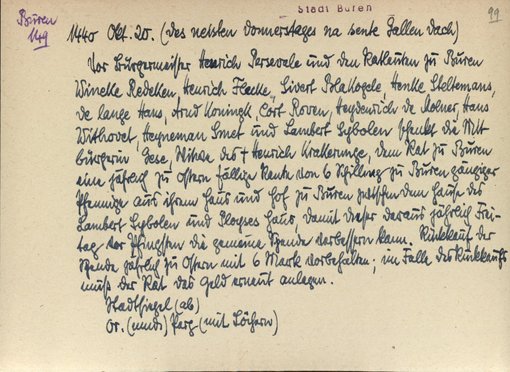 Stadt Büren
Büren
149
99
1440 Okt. 20. (des neisten donnerstages na sente Gallen dach)
Vor Bürgermeister Henrich Persevale und den Ratleuten zu Büren
Wineke Redeken, Henrich Flecke, Sivert Blakogele, Henke Steltemans,
de lange Hans, Arnd Koningk, Cort Roven, Heydenrich de Molner, Hans
Withovet, Heyneman Smet und Lambert Sybolen schenkt die Mit
bürgerin Gese, Witwe des † Henrich, dem Rat zu Büren
eine jährlich zu Ostern fällige Rente von 6 Schilling zu Büren gängiger
Pfennige aus ihrem Haus und Hof zu Büren zwischen dem Hause des
Lambert Sybolen und Ployses Haus, damit dieser daraus jährlich Frei-
tag vor Pfingsten die gemeine Spende verbessern kann. Rückkauf der
Spende jährlich zu Ostern mit 6 Mark vorbehalten; im Falle des Rückkaufs
muß der Rat das Geld erneut anlegen.
Stadtsiegel (ab)
Or. (mnd.) Perg. (mit Löchern)